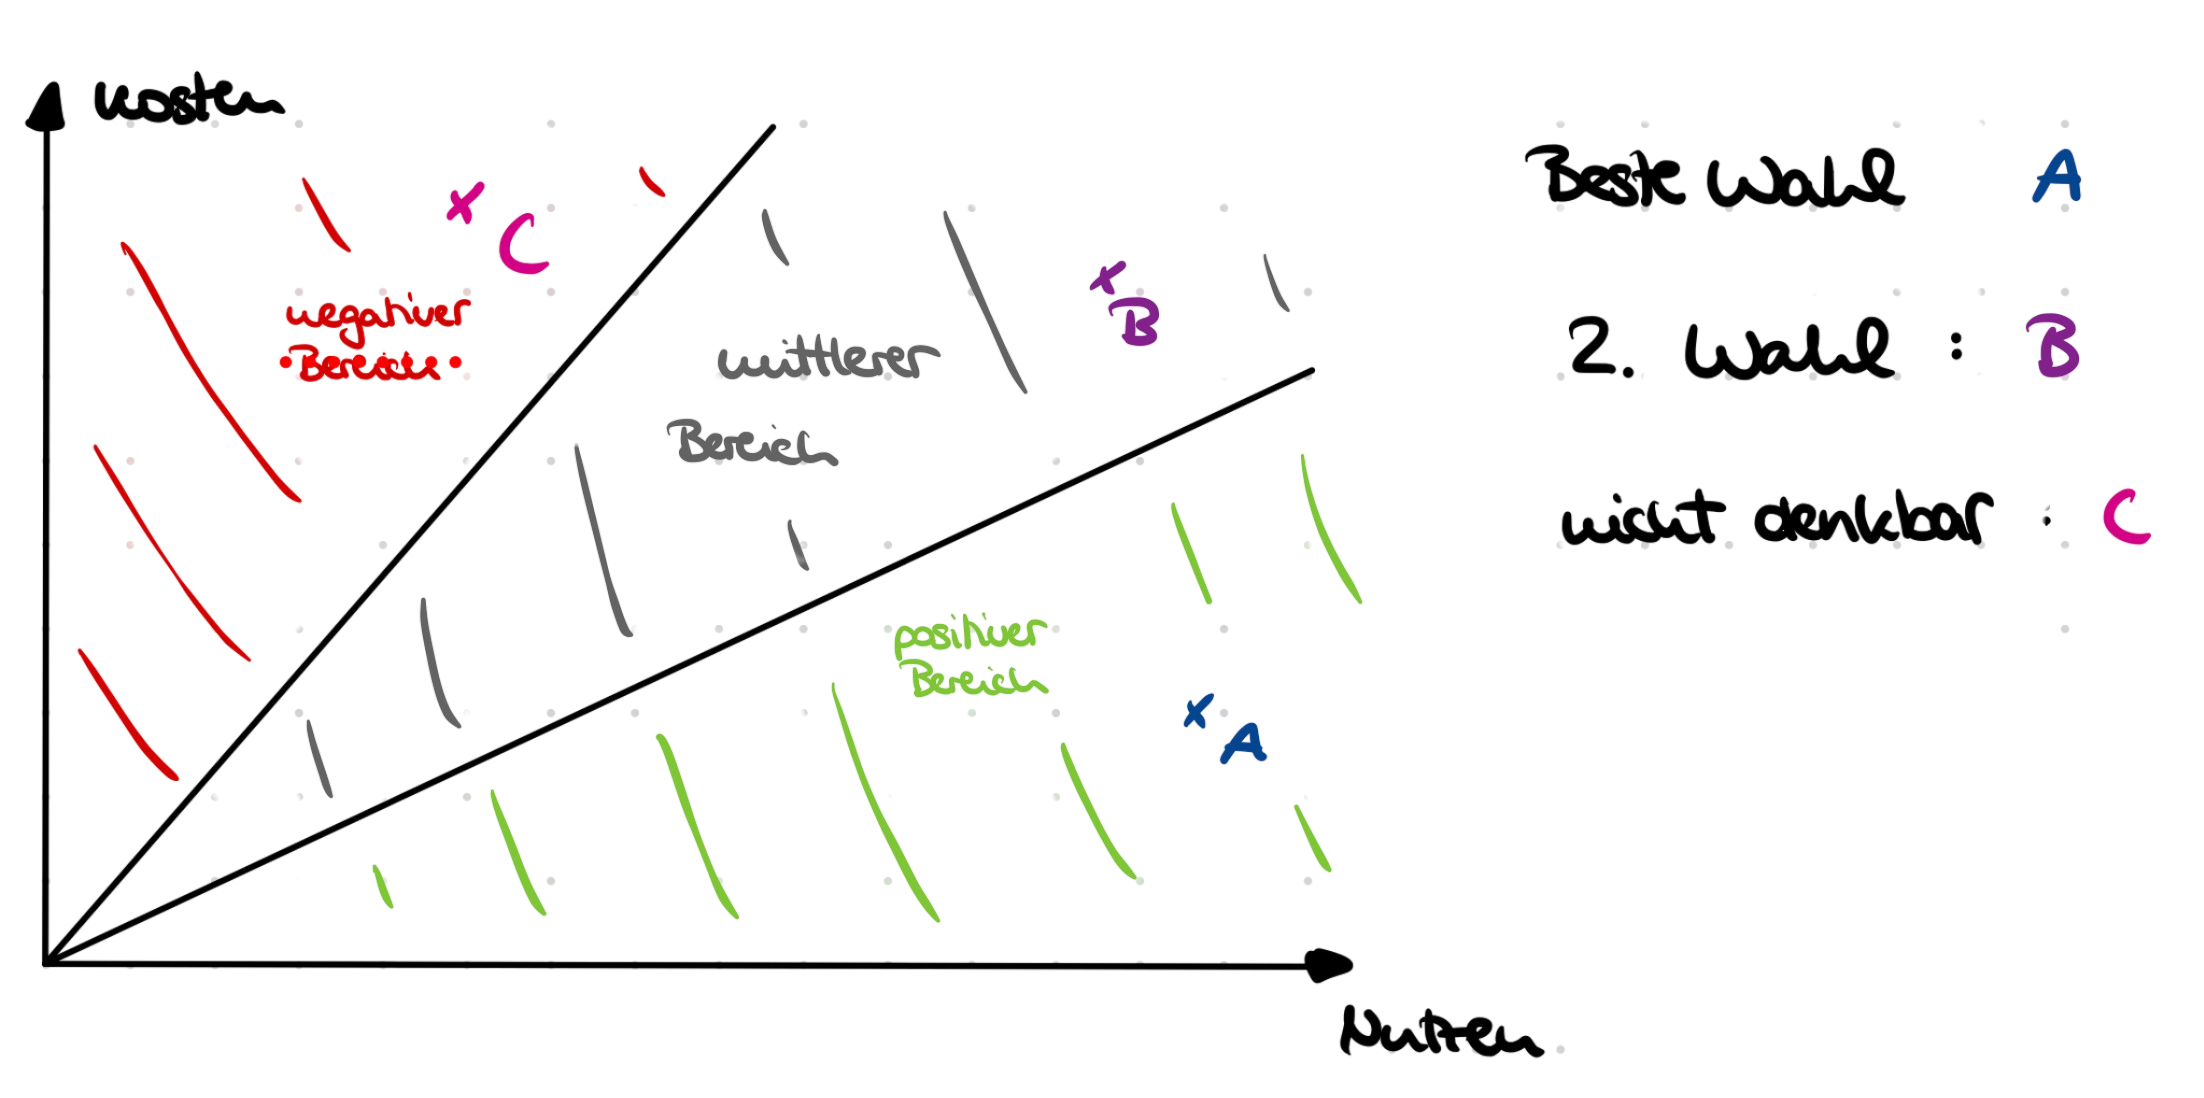 Kosten
x C
negativer
Bereich
mittlerer
Bereich
x
B
positiver
Bereich
x A
Nutzen
Beste Wahl A
2. Wahl : B
nicht denkbar : C